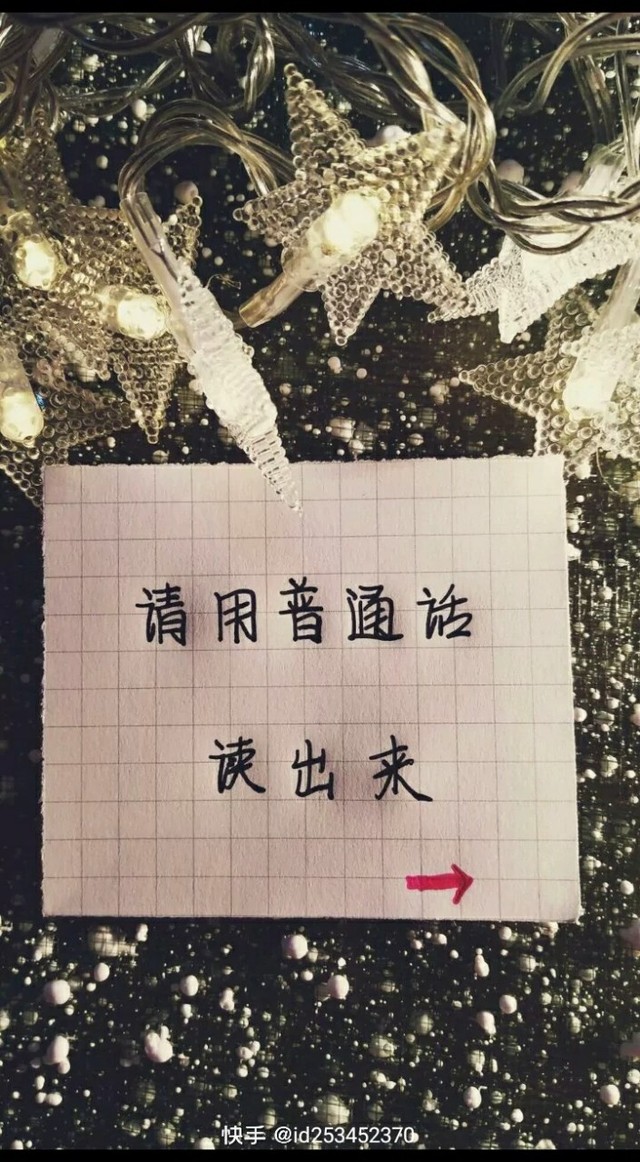 请用普通话
读出来
快手 @id253452370